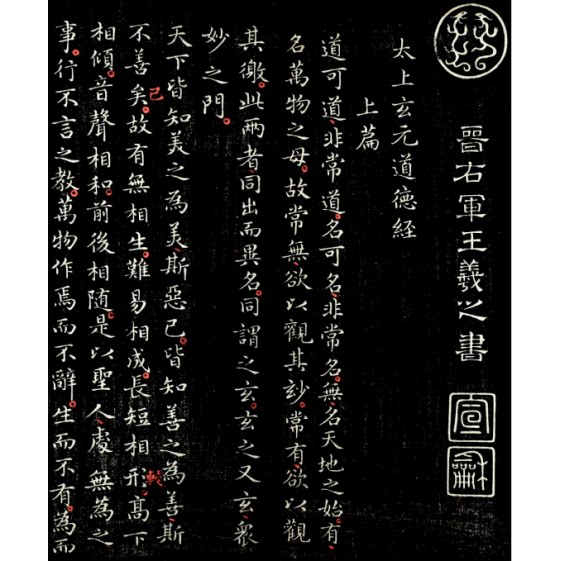 晉右軍王羲之書
宣
龢
太上玄元道德經
上篇
道可道、非常道。名可名、非常名。無、名天地之始。有、
名萬物之母。故常無、欲以觀其玅。常有、欲以觀
其徼。此兩者、同出而異名。同謂之玄。玄之又玄、衆
妙之門。
天下皆知美之為美、斯惡已。皆知善之為善、斯
不善矣。故有無相生。難易相成。長短相形。高下
己
較
相傾。音聲相和。前後相隨。是以聖人、處無為之
事。行不言之教。萬物作焉而不辭。生而不有。為而